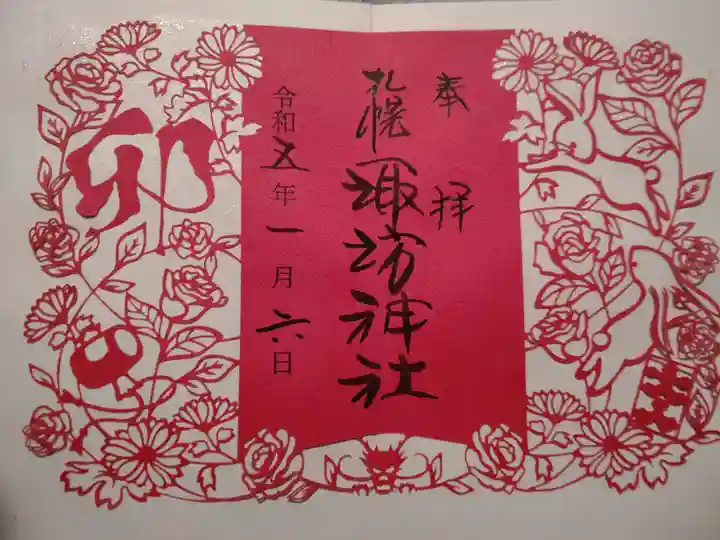 奉拝
札幌諏訪神社
令和五年一月六日
卯